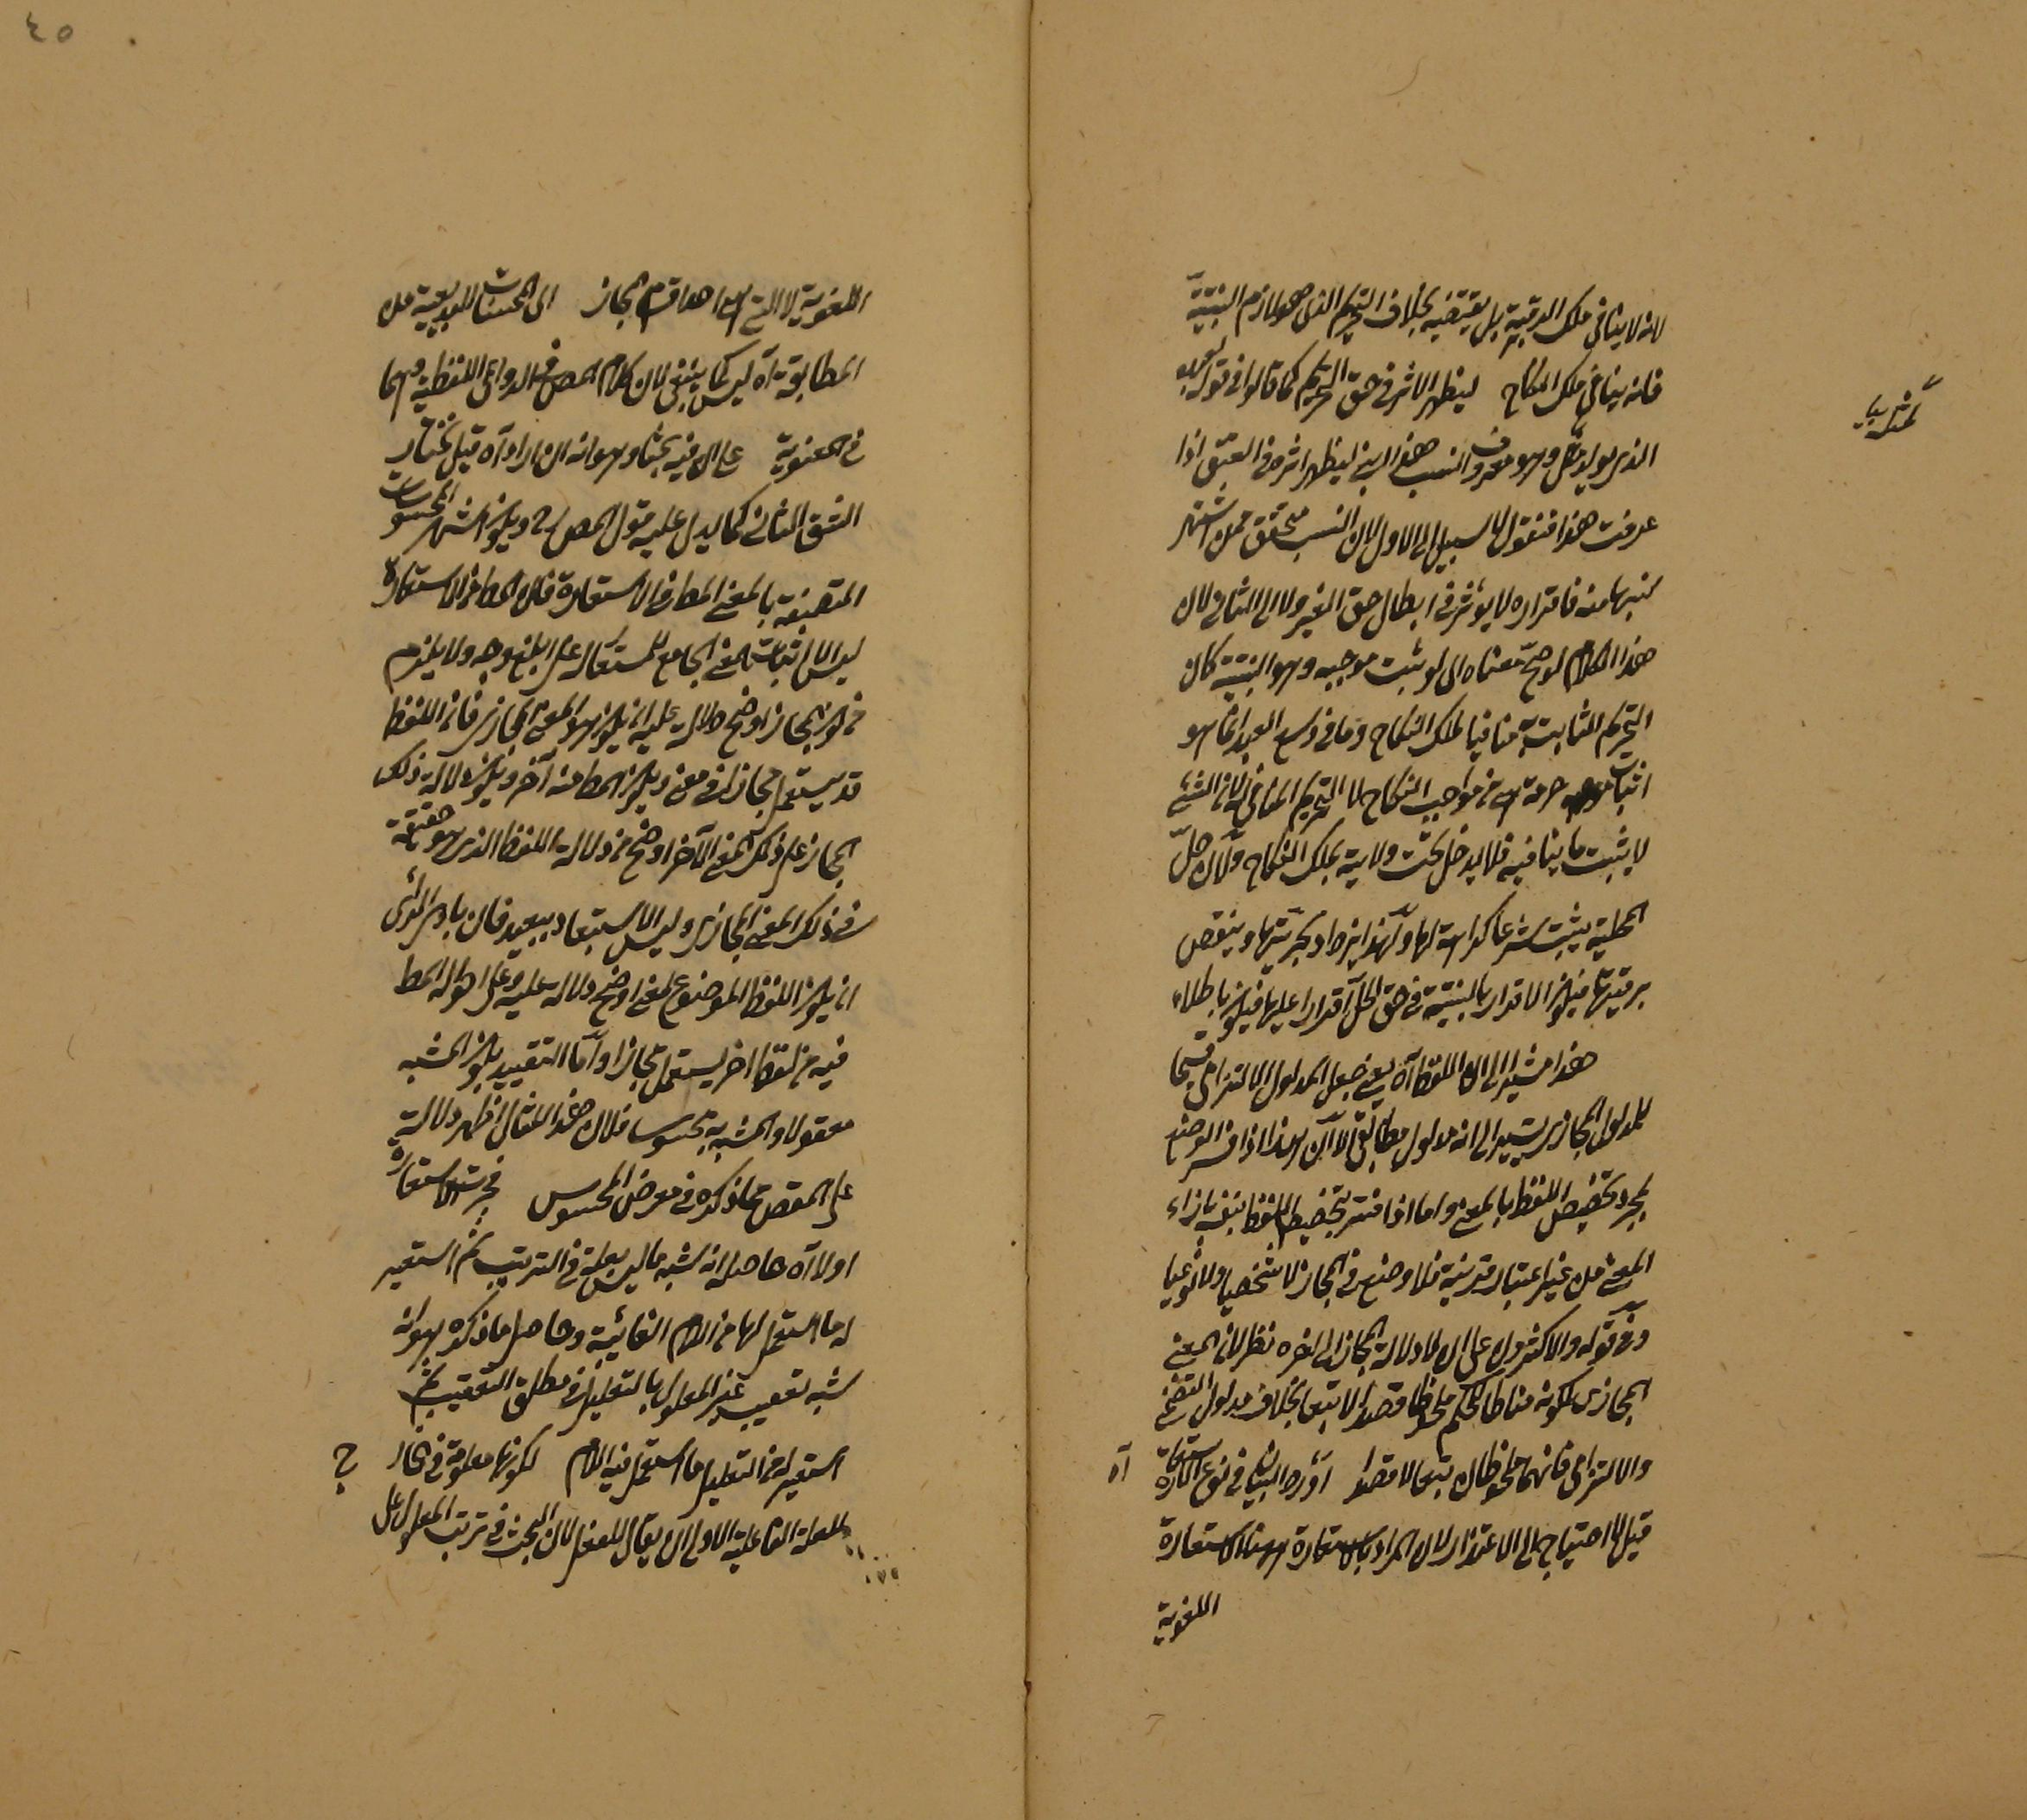 لانه لا ينافي ملك الرقبة بل يقتضيه بخلاف التحريم الذي هو لازم البنتية
فانه ينافي ملك النكاح ليظهر الاثر في حق التحريم كما قالوا في قوله لعبده
الذي يولد لمثله وهو معروف النسب هذا ابني ليظهر اثره في العتق اذا
عرفت هذا فنقول لا سبيل الى الاول لان النسب متحقق ممن اشتهر
نسبها منه فاقراره لا يؤثر في ابطال حق الغير ولا الى الثاني لان
هذا الكلام لو صح معناه اي لو ثبت موجبه وهو البنتية كان
التحريم الثابت به منافيا لملك النكاح وما في وسع العبد انما هو
اثبات حرمة هي من مواجب النكاح لا التحريم المنافي له لان الشئ
لا يثبت ما ينافيه فلا يدخل تحت ولاية يملك النكاح ولان حل
المحلية يثبت شرعا كرامة لها ولهذا يزداد بحريتها وينقص
برقيتها فيكون الاقرار بالبنتية في حق الحل اقرارا عليها فيكون باطلا
هذا مشير الى ان اللفظ آه يعني جعل المدلول الالتزامي قسيما
للمدلول المجازي يشير الى انه مدلول مطابقي الا ان هذا اذا فسر الوضع
بمجرد تخصيص اللفظ بالمعنى واما اذا فسر بتخصيص اللفظ بنفسه بازاء
المعنى من غير اعتبار قرينة فلا وضع في المجاز لا شخصيا ولا نوعيا
وفي قوله والاكثرون على ان لا دلالة للمجاز الى اخره نظر لان المعنى
المجازي لكونه مناطا للحكم ملحوظا قصدا لا تبعا بخلاف مدلول التضمني
والالتزامي فانهما ملحوظان تبعا لا قصدا اورد البيان في نوع استعارة آه
قيل لا احتياج الى الاعتذار لان المراد بالاستعارة ههنا الاستعارة
اللغوية
٤٥
اللغوية لا التي هي احد اقسام المجاز الى المحسنات البديعية من
المطابقة آه ليس كما ينبغي لان كلام المص في الدواعي اللفظية وهما
في المعنوية على ان فيه بحثا وهو انه ان اراد آه قيل نختار
الشق الثاني كما يدل عليه قول المص ويكون اشهر المحسوسات
المتصفة بالمعنى المط في الاستعارة فان المط من الاستعارة
ليس الا اثبات المعنى الجامع للمستعار له على ابلغ وجه ولا يلزم
من كون المجاز اوضح دلالة عليه ان يكون هو المعنى المجازي فان اللفظ
قد يستعمل مجازا في معنى ويكون المط منه آخر ويكون دلالة ذلك
المجاز على ذلك المعنى الآخر اوضح من دلالة اللفظ الذي هو حقيقة
في ذلك المعنى المجازي وليس الاستبعاد ببعيد فان بادي الرأي
ان يكون اللفظ الموضوع لمعنى اوضح دلالة عليه وعلى احواله المط
فيه من لفظ اخر يستعمل مجازا واما التقييد بكون المشبه
معقولا والمشبه به محسوسا فلان هذا المثال اظهر دلالة
على المقص مما ذكره في معرض المحسوس فجرت الاستعارة
اولا آه حاصله انه شبه ما ليس بعلة في الترتيب ثم استعير
له ما استعمل لها من اللام الغائية وحاصل ما ذكره هو انه
شبه تعقيب غير المعلول بالتعليل في مطلق التعقيب ثم
استعير له من التعليل ما استعمل فيه اللام لكونها معلومة في الخارج
للعلة الفاعلية الاولى ان يقال للفعل لان البحث في ترتب المعلول على